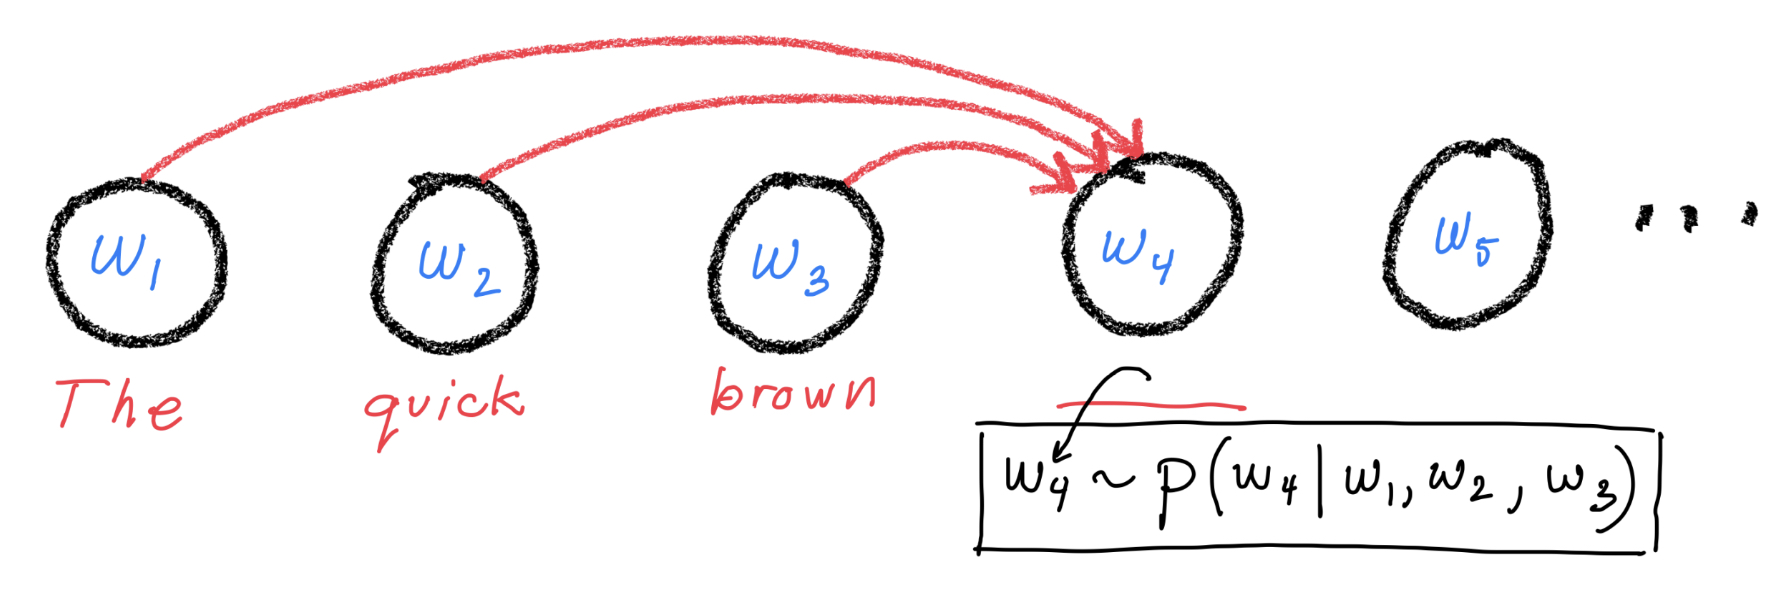 w₁ w₂ w₃ w₄ w₅ ...
The quick brown
w₄ ~ p(w₄ | w₁, w₂, w₃)